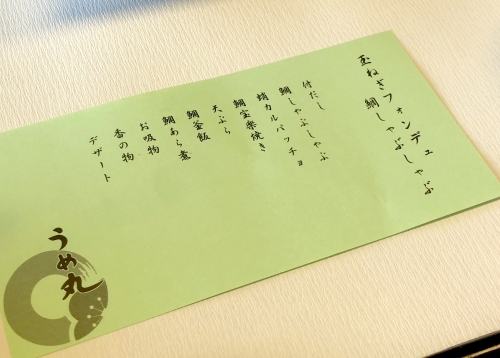 玉ねぎフォンデュ
鯛しゃぶしゃぶ
付だし
鯛しゃぶしゃぶ
蛸カルパッチョ
鯛宝楽焼き
天ぷら
鯛釜飯
鯛あら煮
お吸物
香の物
デザート
うめ丸